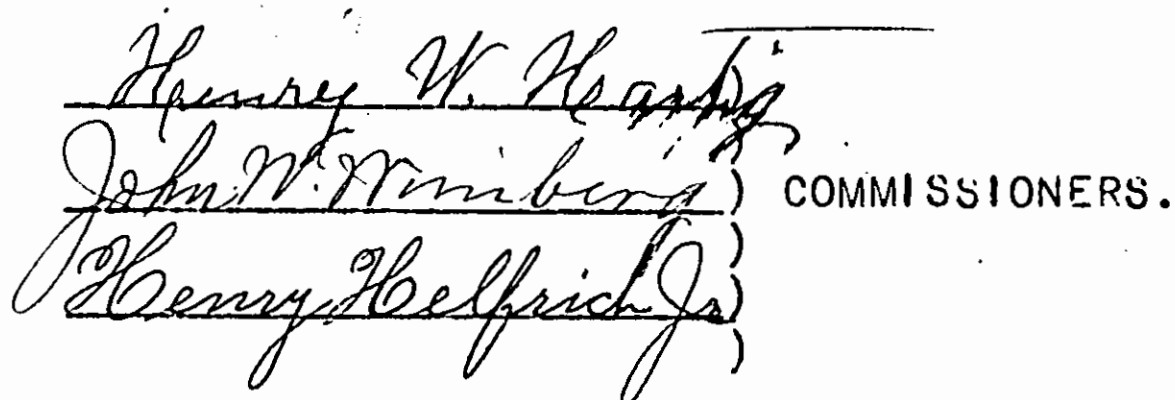 Henry W.
John W. Wimberg ) COMMISSIONERS.
Henry Helfrich Jr )